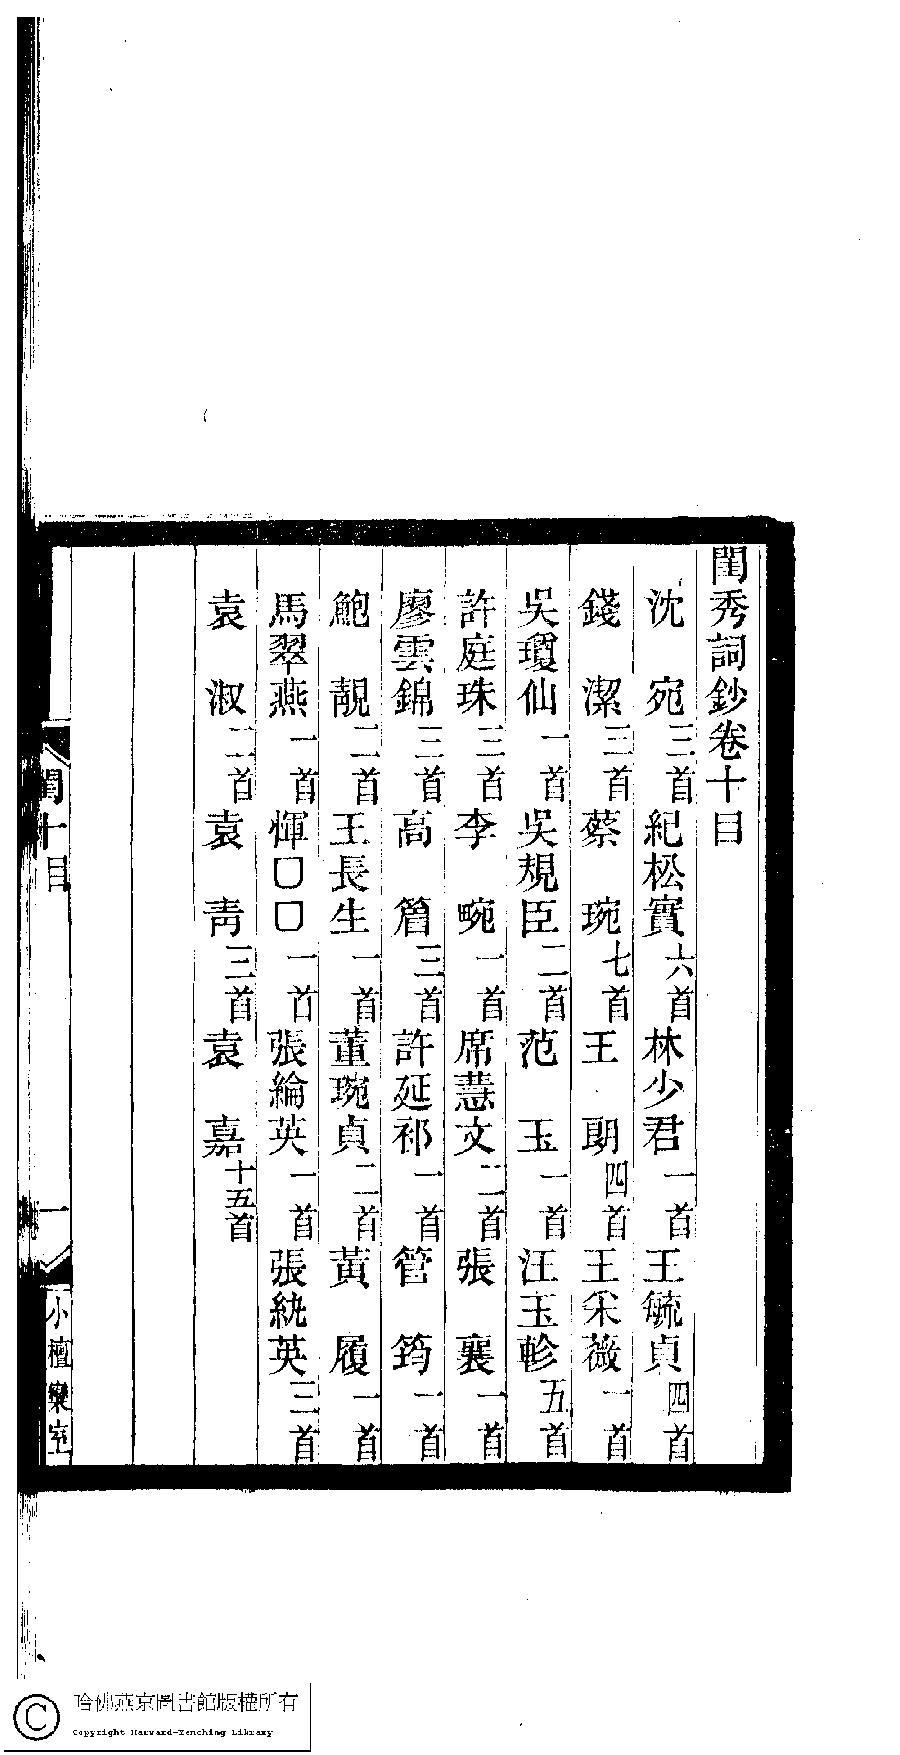 閨秀詞鈔卷十目
沈　宛三首紀松實六首林少君一首王毓貞四首
錢　潔三首蔡　琬七首王　朗四首王采薇一首
吳瓊仙一首吳規臣二首范　玉一首汪玉軫五首
許庭珠三首李　畹一首席蕙文二首張　襄一首
廖雲錦三首高　篃三首許延礽一首管　筠一首
鮑　靚二首王長生一首董琬貞二首黃　履一首
馬翠燕一首惲□□一首張綸英一首張紈英三首
袁　淑二首袁　青三首袁　嘉十五首
閨十目
一
小檀欒室
哈佛燕京圖書館版權所有
Copyright Harvard-Yenching Library